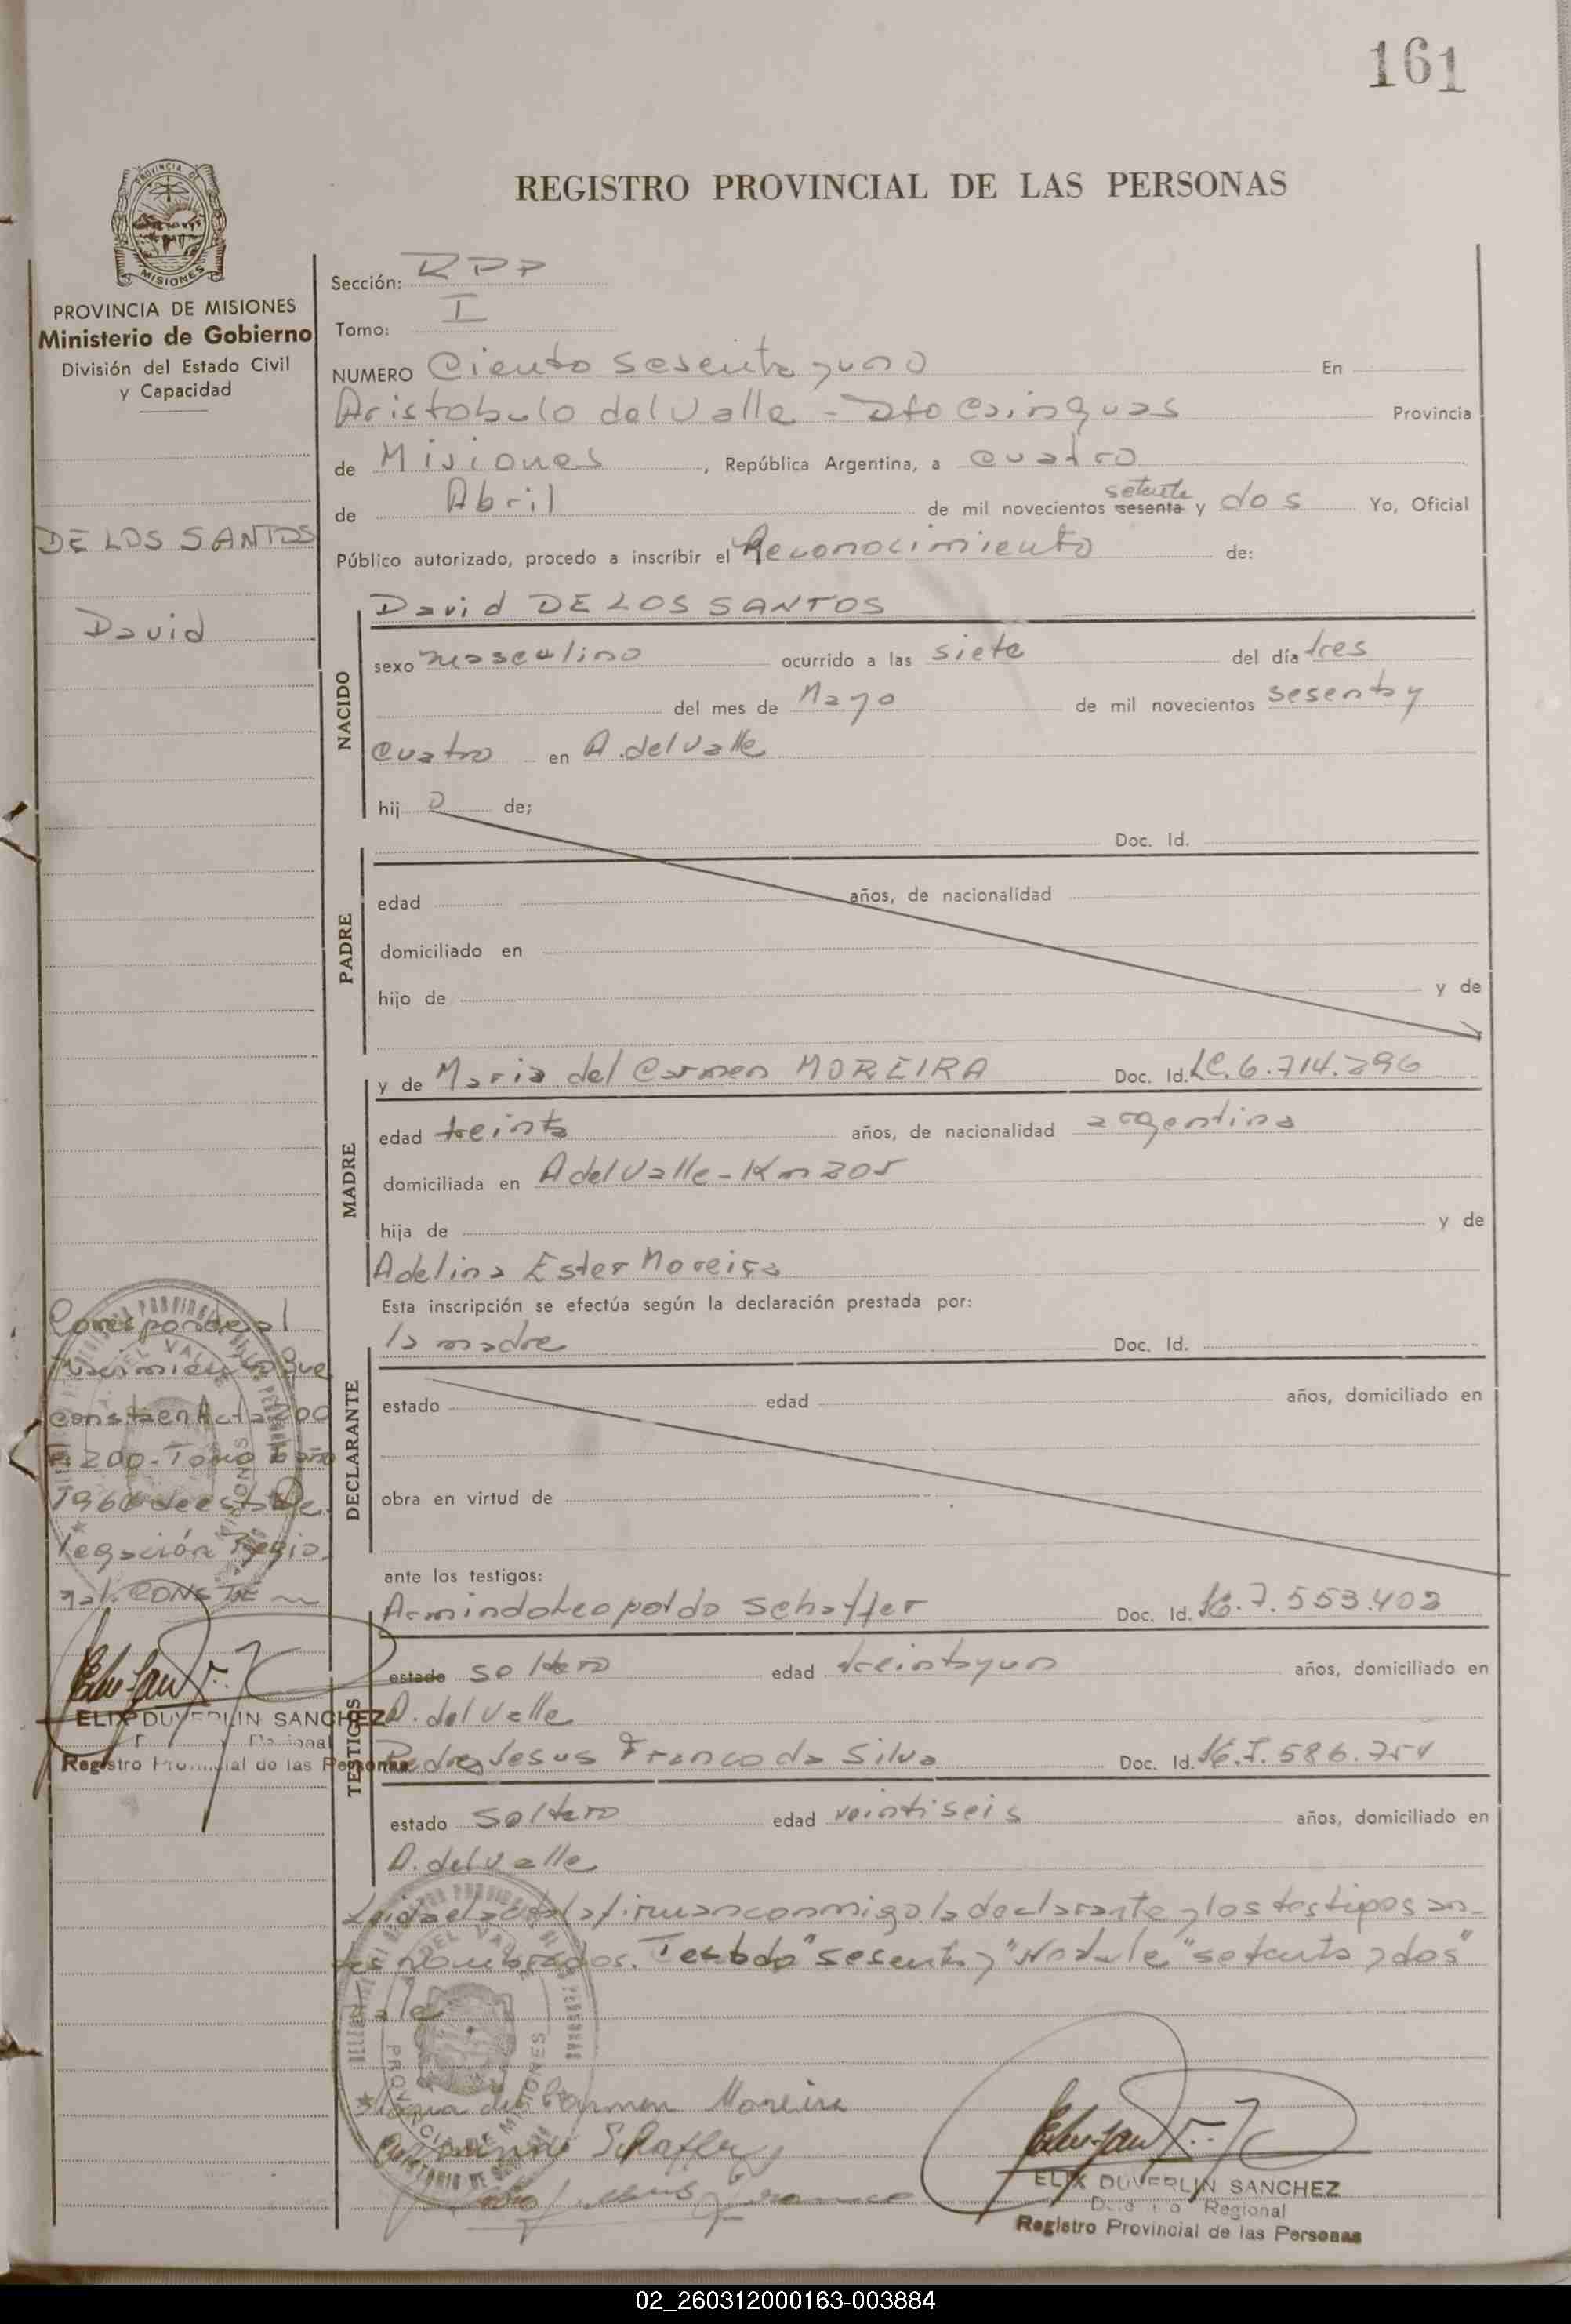 161
REGISTRO PROVINCIAL DE LAS PERSONAS
PROVINCIA DE MISIONES
PROVINCIA DE MISIONES
Ministerio de Gobierno
División del Estado Civil
y Capacidad
DE LOS SANTOS
David
Sección: RPP
Tomo: I
NUMERO Ciento sesenta y uno En
Aristobulo del Valle - Dto Cainguas Provincia
de Misiones, República Argentina, a cuatro
de Abril de mil novecientos sesenta setenta y dos Yo, Oficial
Público autorizado, procedo a inscribir el Reconocimiento de:
NACIDO
David DE LOS SANTOS
sexo masculino ocurrido a las siete del día tres
del mes de Mayo de mil novecientos sesenta y
cuatro en A. del Valle
hij o de;
PADRE
Doc. Id.
edad años, de nacionalidad
domiciliado en
hijo de y de
MADRE
y de Maria del Carmen MOREIRA Doc. Id. LC. 6.714.296
edad treinta años, de nacionalidad argentina
domiciliada en A del Valle - Km 205
hija de y de
Adelina Ester Moreira
Esta inscripción se efectúa según la declaración prestada por:
DECLARANTE
la madre Doc. Id.
estado edad años, domiciliado en
obra en virtud de
ante los testigos:
TESTIGOS
Armindo Leopoldo Schaffer Doc. Id. 7.553.402
estado soltero edad treinta y un años, domiciliado en
A. del Valle
Pedro Jesus Franco da Silva Doc. Id. 7.586.751
estado soltero edad veintiseis años, domiciliado en
A. del Valle
Leida el acta la firman conmigo la declarante y los testigos an-
tes nombrados. Testado "sesenta y" No vale "setenta y dos"
Vale
Corresponde al
Nacimiento que
consta en Acta 200
F. 200 - Tomo año
1964 de esta De
legación Regio
nal. CONSTE
ELIX DUVERLIN SANCHEZ
Registro Provincial de las Personas
Maria del Carmen Moreira
Armindo Schaffer
Pedro Jesus Franco
ELIX DUVERLIN SANCHEZ
Regional
Registro Provincial de las Personas
02_260312000163-003884